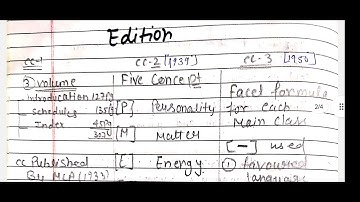 Edition
CC-1
CC-2 [1939]
CC-3 [1950]
③ Volume
Five Concept
Facet formula
Introducation 127Pg
for each
Schedules 135Pg
[P] Personality
Main class
Index 45Pg
307Pg
[M] Matter
[-] used
CC Published
[E] Energy
① favoured
By MLA (1933)
language
2/4